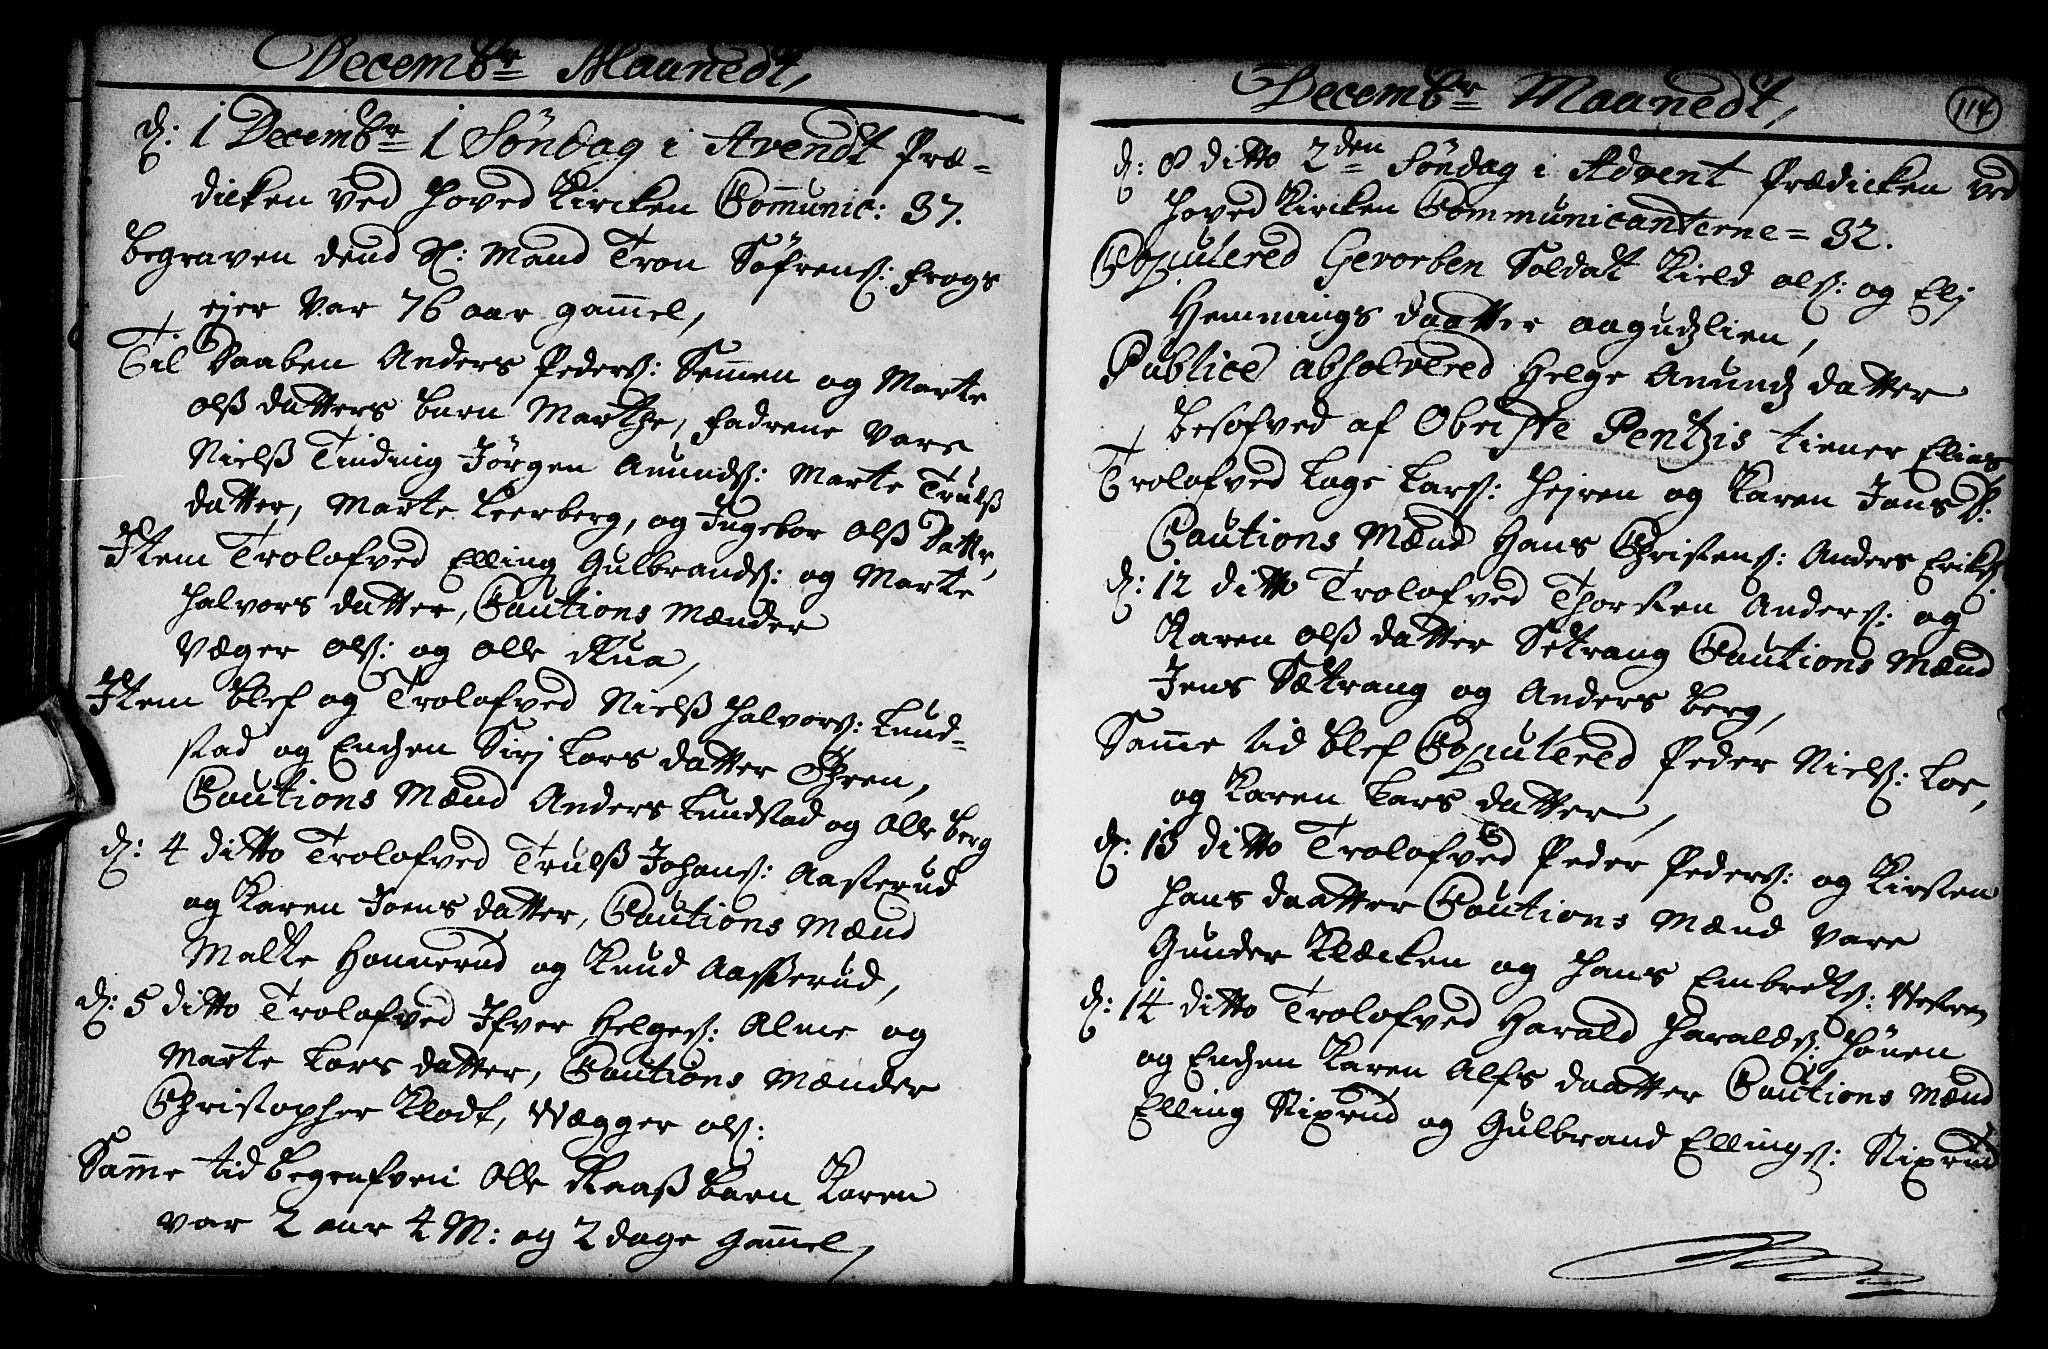 Decembr Maanedt,
d: 1 Decembr 1 Söndag i Avendt Præ=
dicken ved Hoved Kircken Communic: 37.
Begraven dend Sl: Mand Tron Söfrens: Frogs
ejer var 76 aar gamel,
Til Daaben Anders Peders: Semen og Marte
Olß datters barn Marthe, Fadrene vare
Nielß Tinding Jörgen Amunds: Marte Trulß
datter, Marte Leerberg, og Ingebor Olß Datter,
Item Trolofved Elling Gulbrands: og Marte
Halvors datter, Cautions Mænder
Væger Ols: og Olle Rua,
Item blef og Trolofved Nielß Halvors: Lund=
stad og Enchen Sirj Lars datter Ihren,
Cautions Mænd Anders Lundstad og Olle berg
d: 4 ditto Trolofved Trulß Johans: Aasterud
og Karen Joens datter, Cautions Mænd
Malke Honnerud og Knud Aasterud,
d: 5 ditto Trolofved Ifver Helges: Alme og
Marte Lars datter, Cautions Mænder
Christopher Klodt, Wægger Ols:
Samme tid begrafven Olle Raaß barn Karen
var 2 aar 4 M: og 2 dage gamel,
Decembr Maanedt,
114
d: 8 ditto 2den Söndag i Advent Prædicken ved
Hoved Kircken Communicanterne = 32.
Copulered Gevorben Soldat Kield Ols: og Elj
Hemmings daatter Aagudzlien,
Publice absolvered Helge Amundz datter
besofved af Obriste Pentzis tiener Elias
Trolofved Lage Lars: Hejren og Karen Jans D:
Cautions Mænd Hans Christens: Anders Eriks:
d: 12 ditto Trolofved Thorsten Anders: og
Karen Olß datter Setrang Cautions Mænd
Jens Sætrang og Anders berg,
Samme tid blef Copulered Peder Niels: Loe,
og Karen Lars datter,
d: 13 ditto Trolofved Peder Peders: og Kirsten
Hans daatter Cautions Mænd vare
Gunder Klæcken og Hans Embrets: Westren
d: 14 ditto Trolofved Harald Haralds: Hönen
og Enchen Karen Alfs daatter Cautions Mænd
Elling Stixrud og Gulbrand Ellings: Stixrud